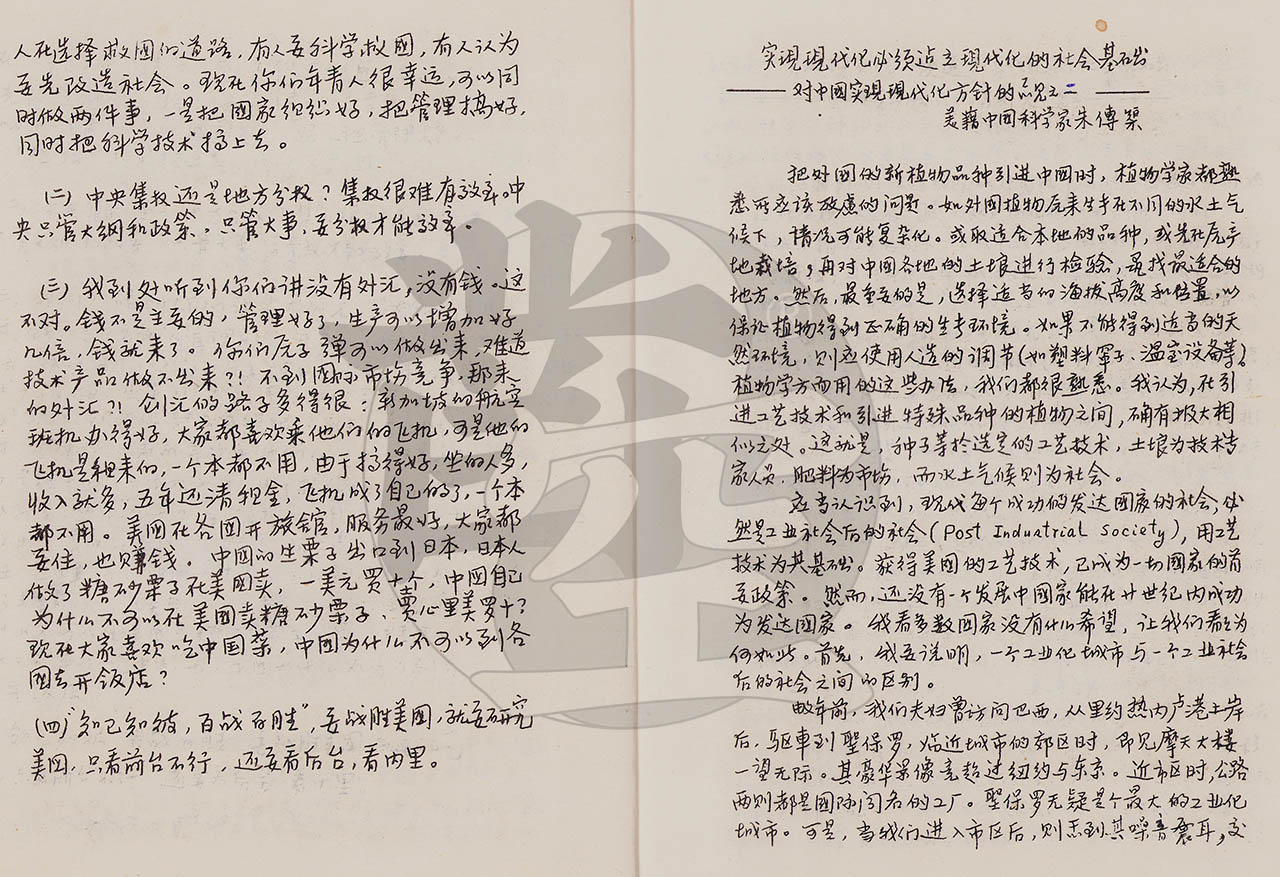 人在选择救國的道路，有人要科学救國，有人认为
要先改造社会。现在你们年青人很幸运，可以同
时做两件事，一是把國家组织好，把管理搞好，
同时把科学技术搞上去。
(二) 中央集权还是地方分权？集权很难有效率。中
央只管大纲和政策。只管大事，要分权才能效率。
(三) 我到处听到你们讲没有外汇，没有钱。这
不对。钱不是主要的，管理好了，生产可以增加好
几倍，钱就来了。你们原子弹可以做出来，难道
技术产品做不出来？！不到国际市场竞争，那来
的外汇？！创汇的路子多得很：新加坡的航空
班机办得好，大家都喜欢乘他们的飞机，可是他的
飞机是租来的，一个本都不用，由于搞得好，坐的人多，
收入就多，五年还清租金，飞机成了自己的了，一个本
都不用。美國在各國开旅馆，服务最好，大家都
要住，也赚钱。中國的生栗子出口到日本，日本人
做了糖砂栗子在美國卖，一美元买十个，中國自己
为什么不可以在美國卖糖砂栗子、卖心里美罗卜？
现在大家喜欢吃中国菜，中國为什么不可以到各
國去开饭店？
(四)“知己知彼，百战百胜”，要战胜美國，就要研究
美國，只看前台不行，还要看后台，看内里。
实现现代化必须适立现代化的社会基础
——对中國实现现代化方针的意见之二——
美籍中国科学家朱傅榘
把外國的新植物品种引进中國时，植物学家都熟
悉所应该放虑的问题。如外國植物原来生长在不同的水土气
候下，情况可能复杂化。或取适合本地的品种，或先在原产
地栽培，再对中國各地的土壤进行检验，寻找最适合的
地方。然后，最重要的是，选择适当的海拔高度和位置，以
保证植物得到正确的生长环境。如果不能得到适当的天
然环境，则应使用人造的调节(如塑料罩子、温室设备等)。
植物学方面用的这些办法，我们都很熟悉。我认为，在引
进工艺技术和引进特殊品种的植物之间，确有极大相
似之处。这就是，种子等於选定的工艺技术，土壤为技术专
家人员，肥料为市场，而水土气候则为社会。
应当认识到，现代每个成功的发达國家的社会，必
然是工业社会后的社会(Post Induatrial Society)，用工艺
技术为其基础。获得美國的工艺技术，已成为一切國家的首
要政策。然而，还没有一个发展中國家能在廿世纪内成功
为发达國家。我看多数國家没有什么希望，让我们看为
何如此。首先，我要说明，一个工业化城市与一个工业社会
后的社会之间的区别。
数年前，我们夫妇曾访问巴西，从里约热内卢港上岸
后，驱車到聖保罗，临近城市的郊区时，即见摩天大楼
一望无际。其豪华景像竟超过纽约与东京。近市区时，公路
两则都是國际闻名的工厂。聖保罗无疑是个最大的工业化
城市。可是，当我们进入市区后，则感到其噪音震耳，交